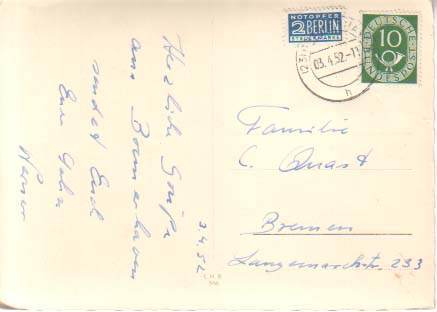 NOTOPFER
2 BERLIN
STEUERMARKE
DEUTSCHE
10
BUNDESPOST
03.4.52-11
h
Herzliche Grüße
aus Bremerhaven
sendet Euch
Eure
Werner
3.4.52
Familie
C. Quast
Bremen
Langemarckstr. 233